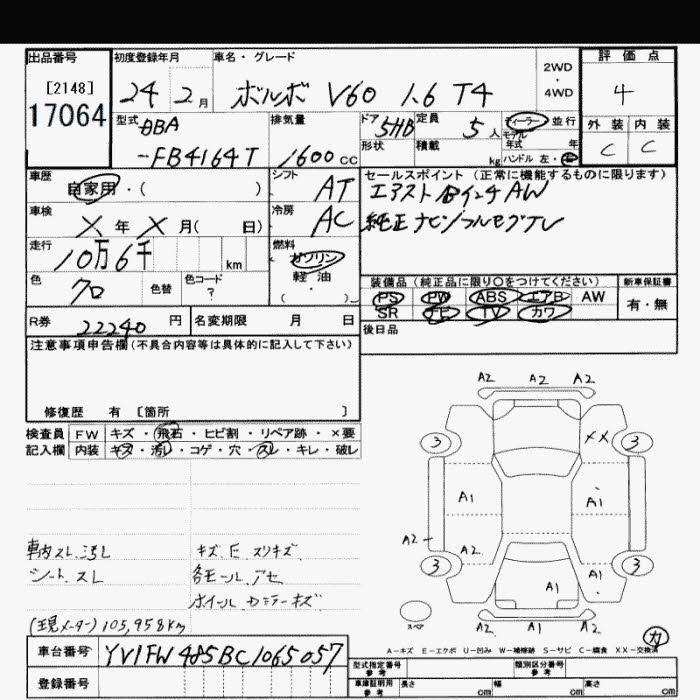 出品番号 初度登録年月 車名・グレード 評価点
[2148] 2WD
17064 24年 2月 ボルボ V60 1.6 T4 ・ 4WD 4
型式 DBA 排気量 ドア 5HB 定員 5人 ディーラー・並行 外装 内装
-FB4164T 1600cc 形状 積載 kg モデル年式 年 C C
ハンドル 左・右
車歴 自家用・( ) シフト AT セールスポイント (正常に機能するものに限ります)
車検 X年X月( 日) 冷房 AC 純正ナビ フルセグTV
走行 10万6千 km 燃料 ガソリン
軽油
・( )
色 クロ 色替 色コード ? 装備品 (純正品に限り○をつけてください) 新車保証書
PS PW ABS エアB AW 有・無
R券 22240円 名変期限 月 日 SR ナビ TV カワ
注意事項申告欄(不具合内容等は具体的に記入して下さい) 後日品
修復歴 有 [箇所 ]
検査員 FW キズ・飛石・ヒビ割・リペア跡・×要
記入欄 内装 キズ・汚レ・コゲ・穴・スレ・キレ・破レ
A2 A2 A2
3 XX 3
A1 A1
A2 A2 A2
3 A1 A1 3
A2 A1 A2
スペア
車内スレ、汚レ キズ E スリキズ
シート、スレ 各モール、アセ
ホイール カラーキズ
(現メーター) 105,958km
A-キズ E-エクボ U-凹み W-補修跡 S-サビ C-腐食 XX-交換済
車台番号 YV1FW485BC1065057
登録番号
型式指定番号 参考 類別区分番号 参考
車庫証明用 参考 長さ cm 幅 cm 高さ cm